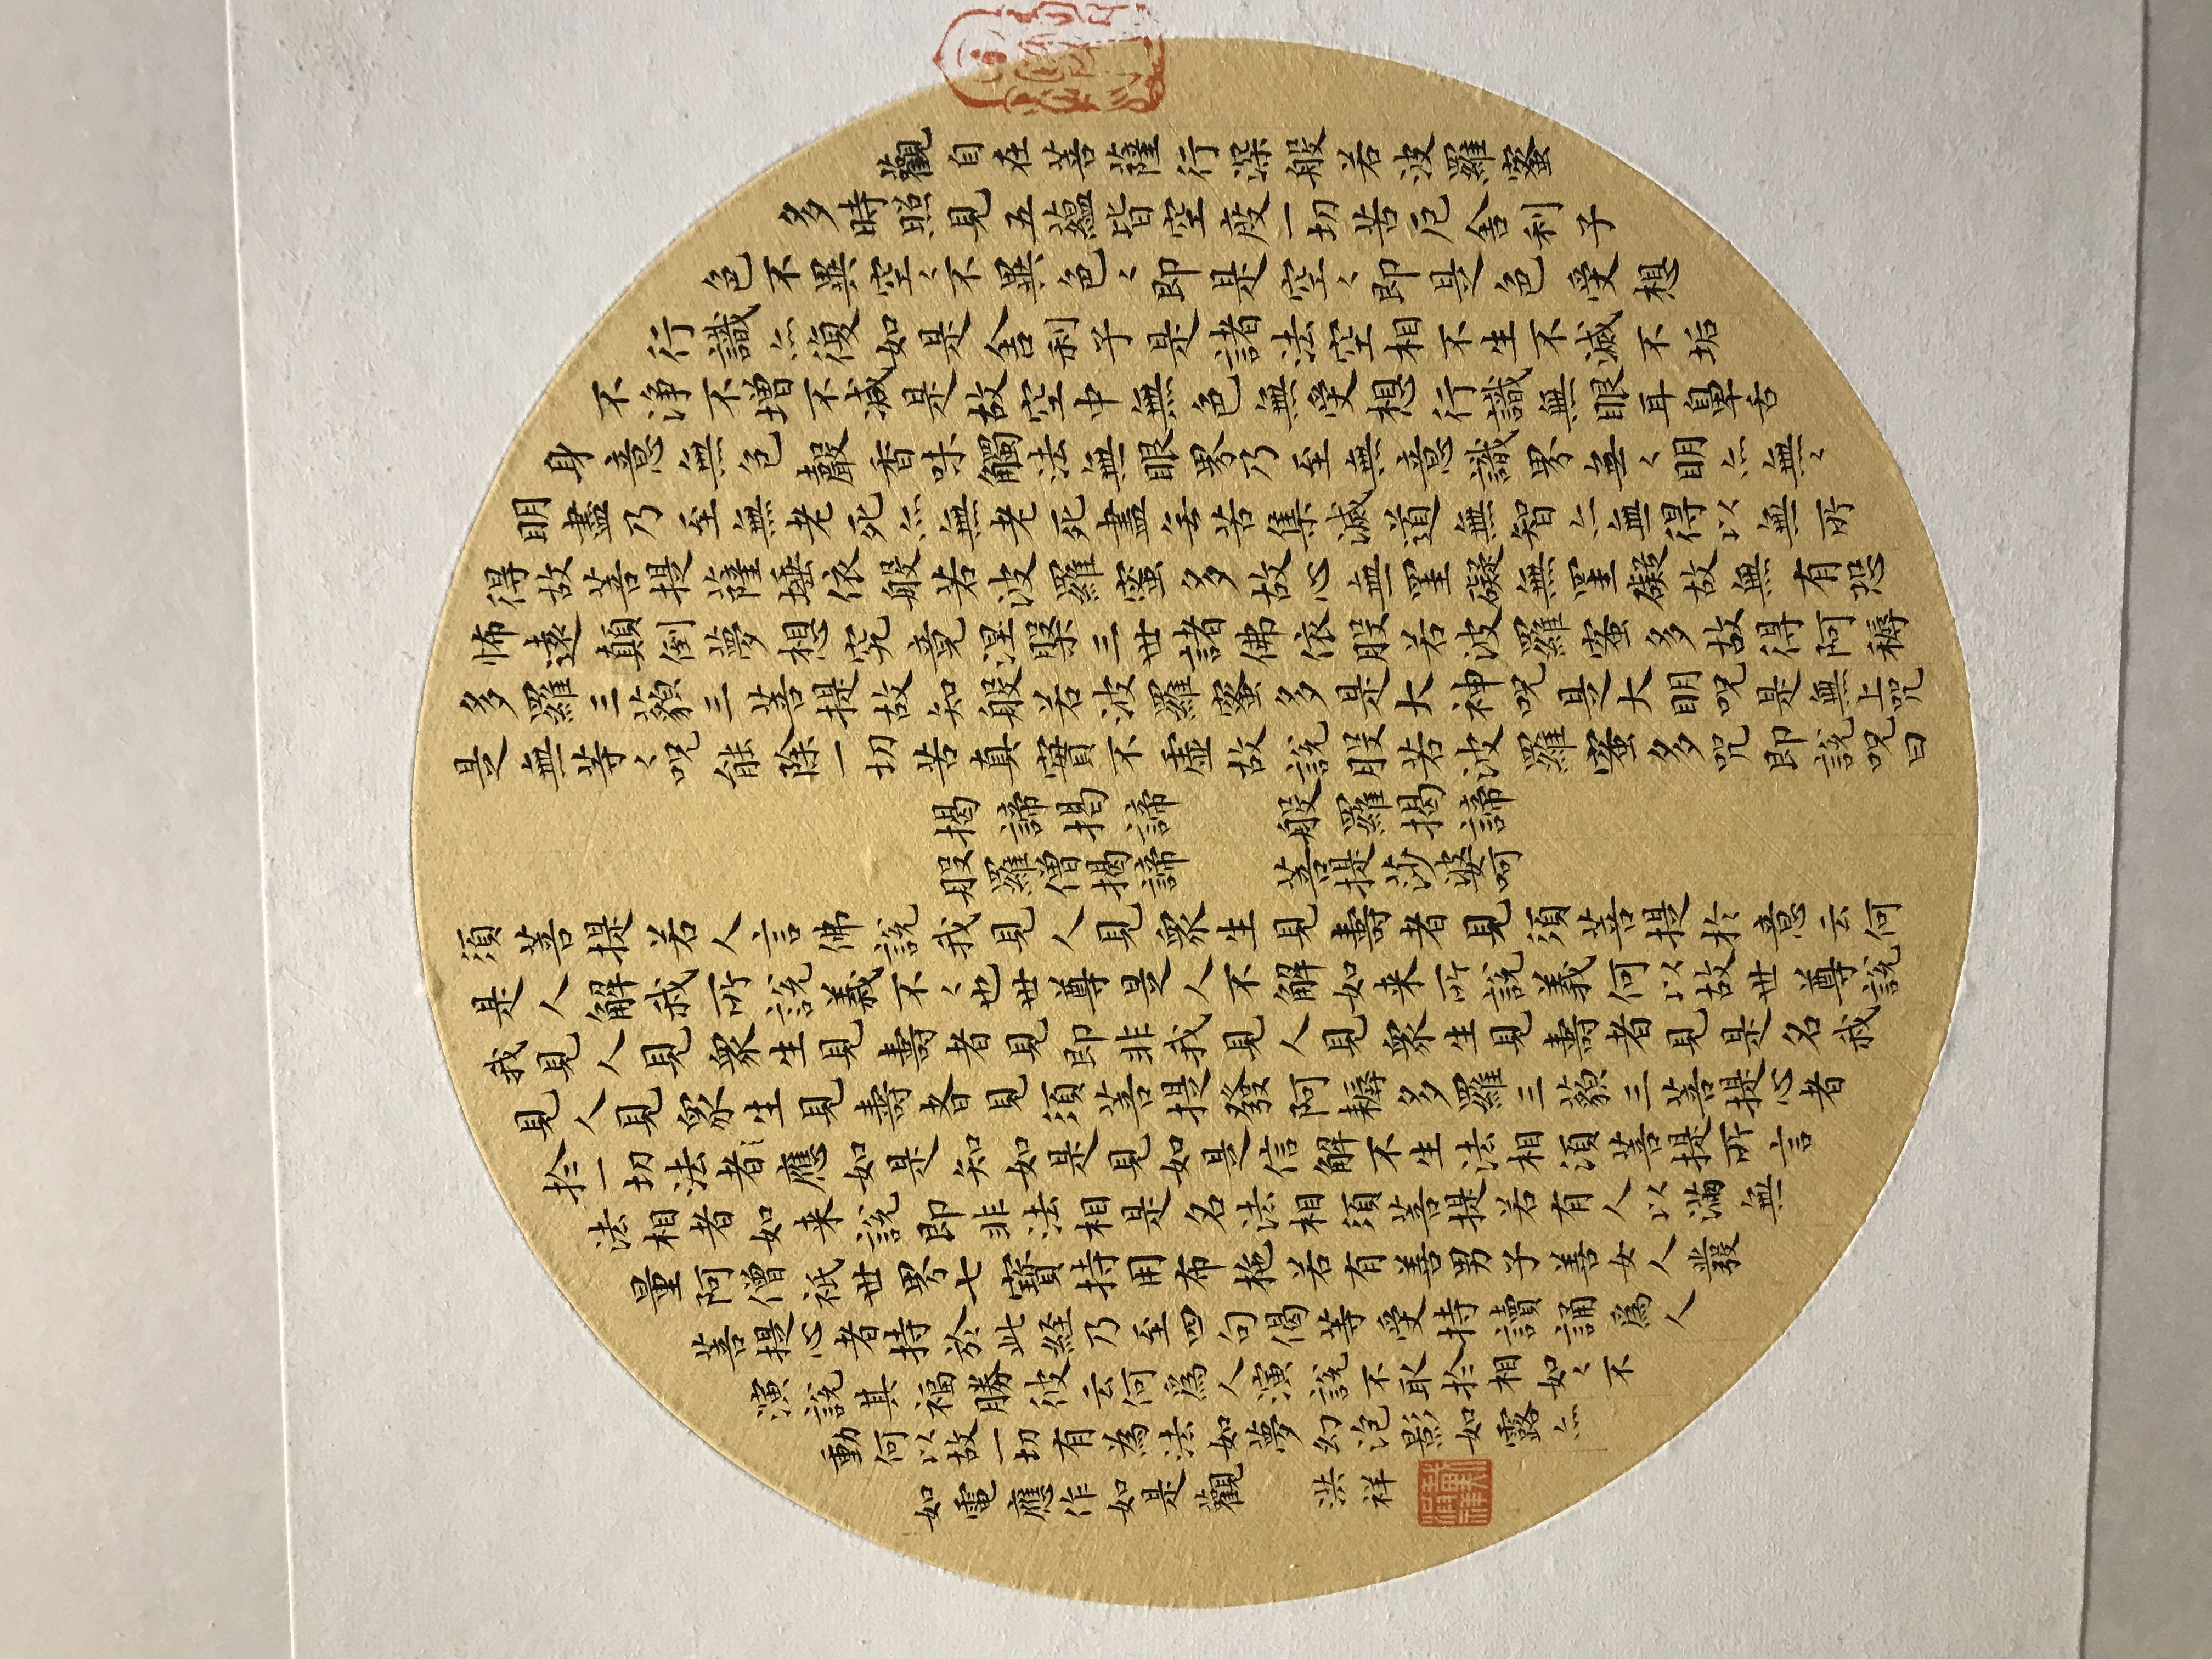 觀自在菩薩行深般若波羅蜜
多時照見五蘊皆空度一切苦厄舍利子
色不異空々不異色々即是空々即是色受想
行識亦復如是舍利子是諸法空相不生不滅不垢
不淨不增不減是故空中無色無受想行識無眼耳鼻舌
身意無色聲香味觸法無眼界乃至無意識界無々明亦無々
明盡乃至無老死亦無老死盡無苦集滅道無智亦無得以無所
得故菩提薩埵依般若波羅蜜多故心無罣礙無罣礙故無有恐
怖遠顛倒夢想究竟涅槃三世諸佛依般若波羅蜜多故得阿耨
多羅三藐三菩提故知般若波羅蜜多是大神咒是大明咒是無上咒
是無等々呪能除一切苦真實不虛故說般若波羅蜜多咒即說呪曰
揭諦揭諦 般羅揭諦
般羅僧揭諦 菩提莎婆呵
須菩提若人言佛說我見人見眾生見壽者見須菩提於意云何
是人解我所說義不々也世尊是人不解如来所說義何以故世尊說
我見人見眾生見壽者見即非我見人見眾生見壽者見是名我
見人見眾生見壽者見須菩提發阿耨多羅三藐三菩提心者
於一切法者應如是知如是見如是信解不生法相須菩提所言
法相者如来說即非法相是名法相須菩提若有人以滿無
量阿僧祇世界七寶持用布施若有善男子善女人發
菩提心者持於此経乃至四句偈等受持讀誦為人
演說其福勝彼云何為人演說不取於相如々不
動何以故一切有為法如夢幻泡影如露亦
如電應作如是觀 洪祥